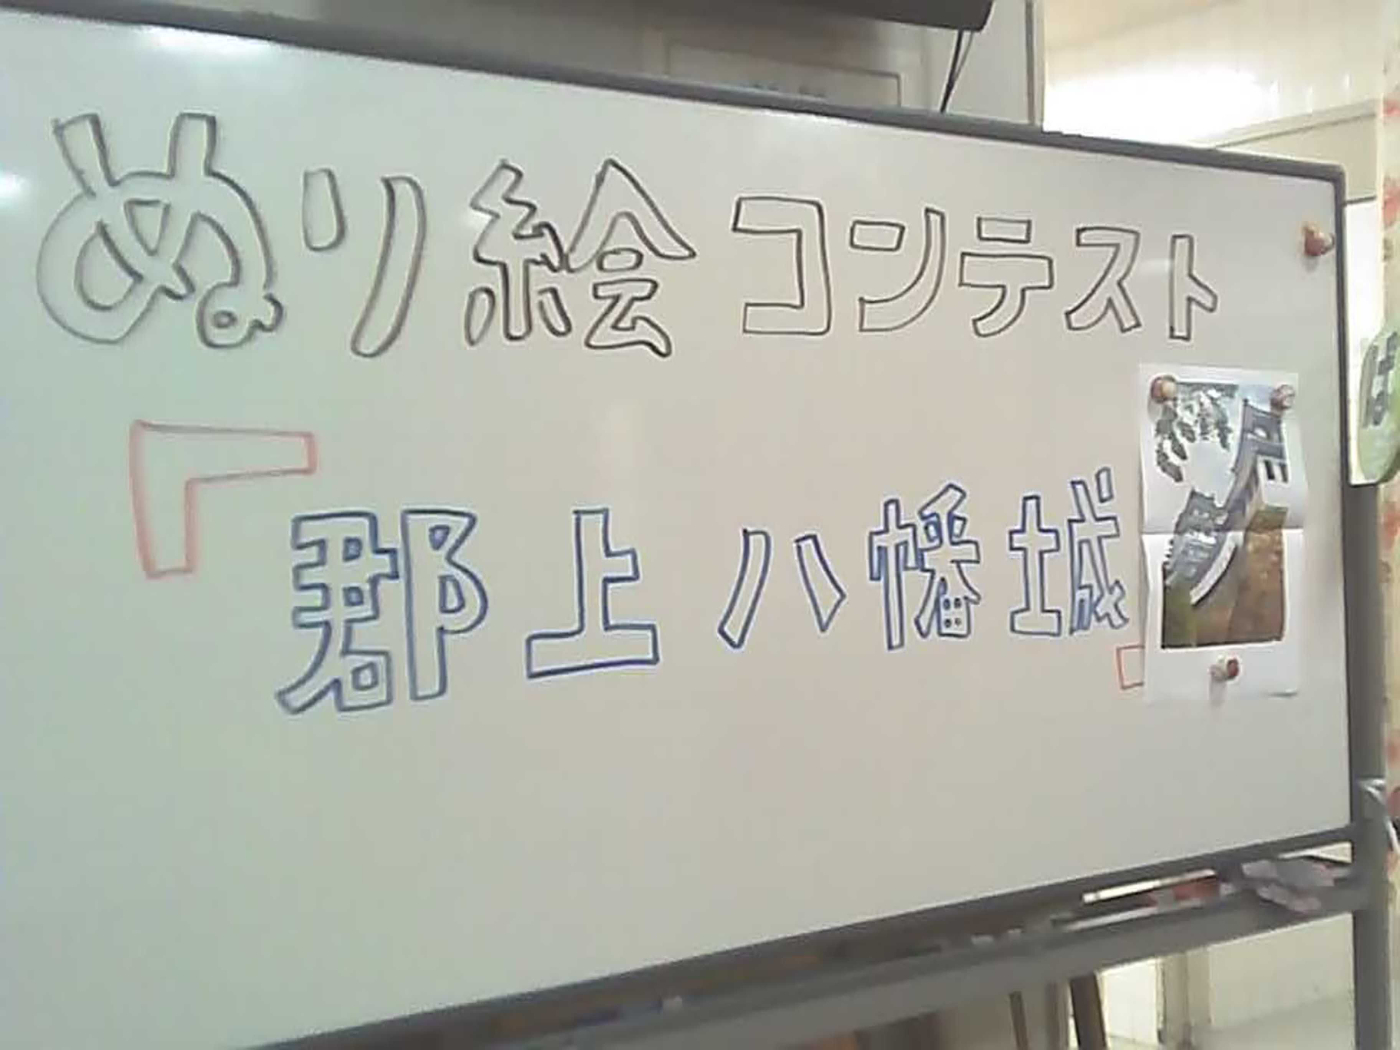 ぬり絵コンテスト
「郡上八幡城」
は